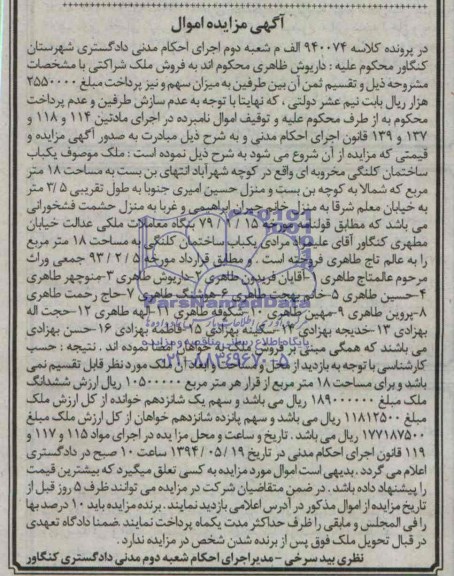 آگهی مزایده اموال
در پرونده کلاسه ۹۴۰۰۷۴ الف م شعبه دوم اجرای احکام مدنی دادگستری شهرستان
کنگاور محکوم علیه : داریوش ظاهری محکوم اند به فروش ملک شراکتی با مشخصات
مشروحه ذیل و تقسیم ثمن آن بین طرفین به میزان سهم و نیز پرداخت مبلغ ۲۵۵۰۰۰۰
هزار ریال بابت نیم عشر دولتی ، که نهایتا با توجه به عدم سازش طرفین و عدم پرداخت
محکوم به از طرف محکوم علیه و توقیف اموال نامبرده در اجرای مادتین ۱۱۴ و ۱۱۸ و
۱۳۷ و ۱۳۹ قانون اجرای احکام مدنی و به شرح ذیل مبادرت به صدور آگهی مزایده و
قیمتی که مزایده از آن شروع می شود به شرح ذیل نموده است : ملک موصوف یکباب
ساختمان کلنگی مخروبه ای واقع در کوچه شهرآباد انتهای بن بست به مساحت ۱۸ متر
مربع که شمالا به کوچه بن بست و منزل حسین امیری جنوبا به طول تقریبی ۳/۵ متر
به خیابان معلم شرقا به منزل خانم جیران ابراهیمی و غربا به منزل حشمت فشخورانی
می باشد که مطابق قولنامه مورخه ۱۵ / ۷ / ۷۹ بنگاه معاملات ملکی عدالت خیابان
مطهری کنگاور آقای علی مرادی یکباب ساختمان کلنگی به مساحت ۱۸ متر مربع
را به عالم تاج طاهری فروخته است . و مطابق قرارداد مورخه ۵ / ۲ / ۹۳ جمعی وراث
مرحوم عالمتاج طاهری ۱-آقایان فریدون طاهری ۲-داریوش طاهری ۳-منوچهر طاهری
۴-حسین طاهری ۵-خانم بهجت طاهری ۶-هوشنگ طاهری ۷-حاج رحمت طاهری
۸-پروین طاهری ۹-مهین طاهری ۱۰-شکوفه طاهری ۱۱-الهه طاهری ۱۲-حجت اله
بهزادی ۱۳-خدیجه بهزادی ۱۴-سکینه بهزادی ۱۵-فاطمه بهزادی ۱۶-حسن بهزادی
می باشند که همگی مبنی بر فروش ملک به خواهان امضا نموده اند . نتیجه : حسب
کارشناسی با توجه به بازدید از محل و مساحت و ابعاد آن ملک مورد نظر قابل تقسیم نمی
باشد و برای مساحت ۱۸ متر مربع از قرار هر متر مربع ۱۰۵۰۰۰۰۰ ریال ارزش ششدانگ
ملک مبلغ ۱۸۹۰۰۰۰۰۰ ریال می باشد و سهم یک شانزدهم خوانده از کل ارزش ملک
مبلغ ۱۱۸۱۲۵۰۰ ریال می باشد و سهم پانزده شانزدهم خواهان از کل ارزش ملک مبلغ
۱۷۷۱۸۷۵۰۰ ریال می باشد . تاریخ و ساعت و محل مزایده در اجرای مواد ۱۱۵ و ۱۱۷ و
۱۱۹ قانون اجرای احکام مدنی در تاریخ ۱۹ / ۰۵ / ۱۳۹۴ ساعت ۱۰ صبح در دادگستری
اعلام می گردد . بدیهی است اموال مورد مزایده به کسی تعلق میگیرد که بیشترین قیمت
را پیشنهاد داده باشد . در ضمن متقاضیان شرکت در مزایده می توانند ظرف ۵ روز قبل از
تاریخ مزایده از اموال مذکور در آدرس اعلامی بازدید نمایند . برنده مزایده باید ۱۰ درصد بها
را فی المجلس و مابقی را ظرف حداکثر مدت یکماه پرداخت نمایند .ضمنا دادگاه تعهدی
در قبال تحویل ملک فوق پس از برنده شدن شخص در مزایده ندارد .
نظری بید سرخی - مدیر اجرای احکام شعبه دوم مدنی دادگستری کنگاور
ParsNamadData
پایگاه اطلاع رسانی مناقصه و مزایده
۰۲۱-۸۸۳۴۹۶۷۰-۵